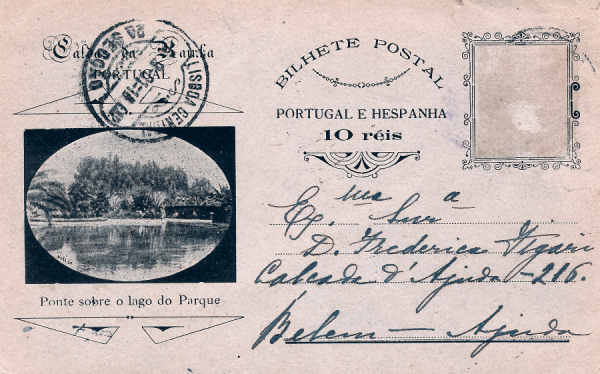 Caldas da Rainha
PORTUGAL
LISBOA CENTRAL
BILHETE POSTAL
PORTUGAL E HESPANHA
10 réis
Ponte sobre o lago do Parque
Ex.ma Snr.a
D. Frederica Figari
Calçada d'Ajuda - 216.
Belem — Ajuda